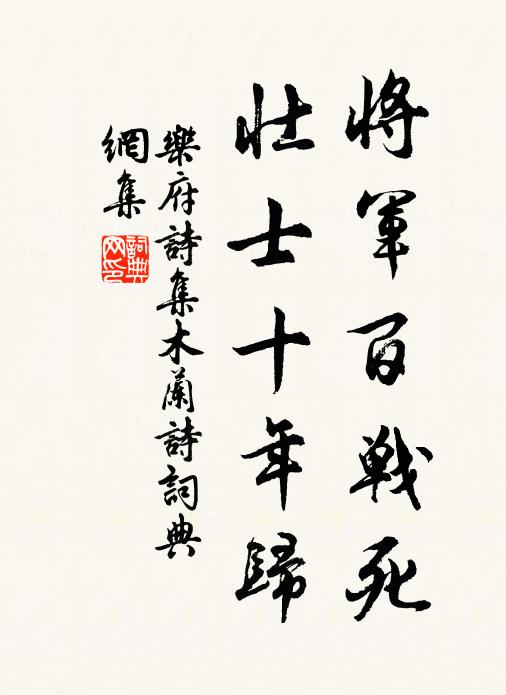 將軍百戰死
壯士十年歸
樂府詩集木蘭詩詞典
網集
詞典
网印